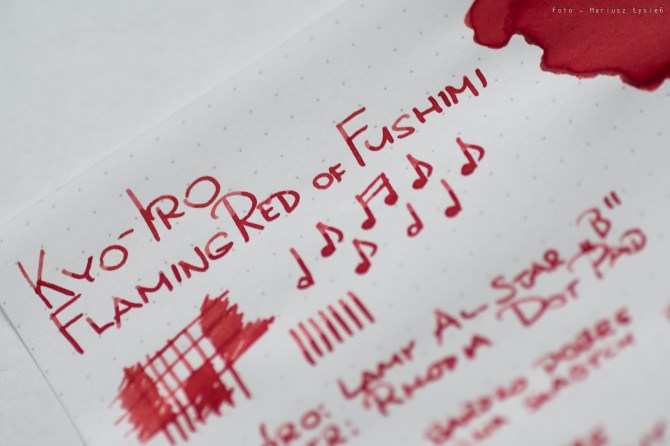 Foto - Mariusz Łysień
KYO-IRO
FLAMING RED OF FUSHIMI
LAMY AL-STAR "B"
RHODIA DOT PAD
BARDZO DOBRE